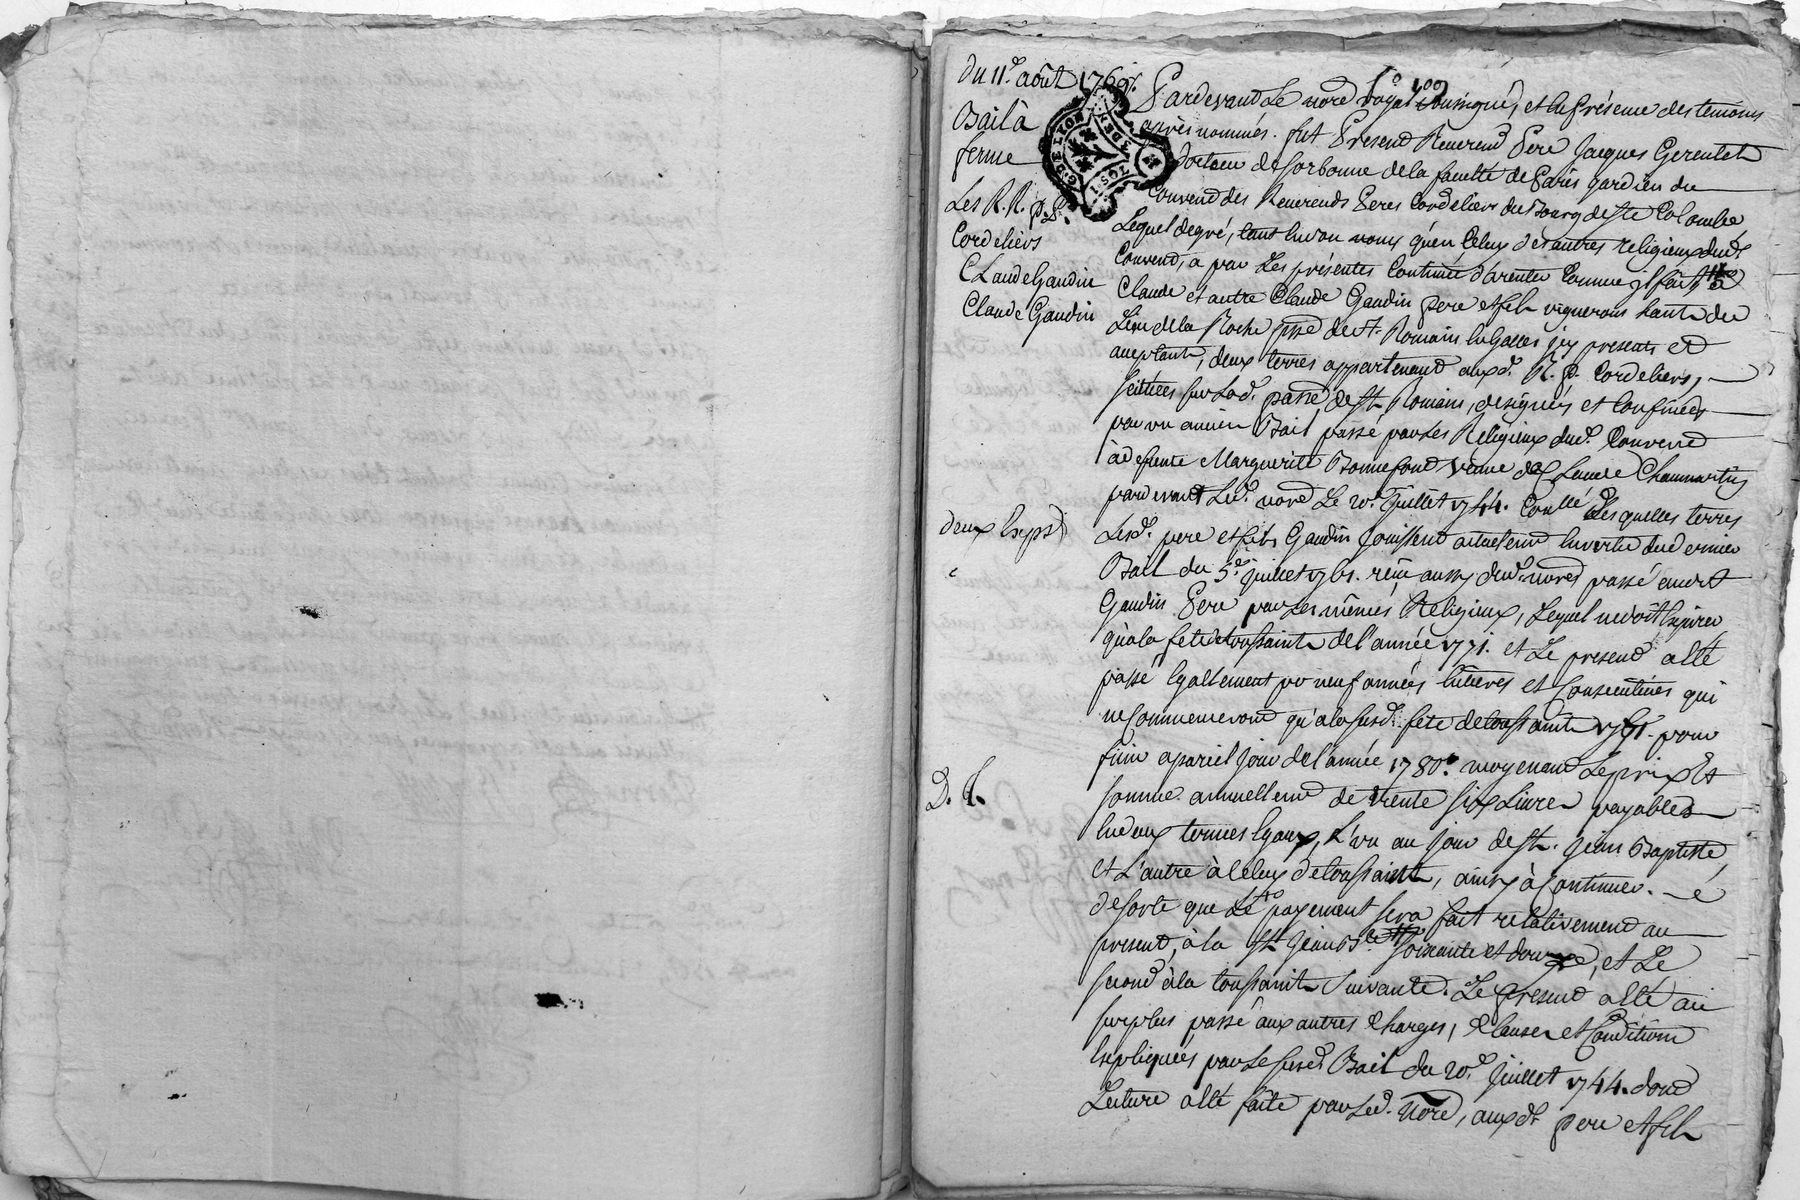 Du 11e. août 1769.
Bail à
ferme
Les R.R. p.p.
Cordeliers
Claude Gaudin
Claude Gaudin
deux Exped
D. C.
G. DE LYON
DEN
Pardevant Le nore royal soussigné, et En présence des temoins
après nommés. fut Present Reverend Pere Jacques Gerentet
Docteur de sorbonne de la faculté de Paris gardien du
Couvend des Reverends Peres Cordeliers du Bourg de Ste Colombe
Lequel de gré, tant En son nom qu'en Celuy des autres religieux dud.
Couvend, a par Les présentes Continué d'arenter Comme il fait à
Claude et autre Claude Gaudin pere et fils vignerons hants du
Lieu de la Roche psse de St. Romain En Galles icy presents et
acceptants, deux terres appartenant auxd. R. P. Cordeliers,
scituées sur Lad. passe de St Romain, designées et Confinées
par un ancien Bail passé par Les Religieux dud. Couvend
à deffunte Marguerite Bonnefond veuve de Claude Chammartin
pardevant Led. nore Le 20e. Juillet 1744. Conllé Lesquelles terres
Lesd. pere et fils Gaudin Jouissent actuelemt En vertu du dernier
Bail du 5e. Juillet 1761. reçu aussy dud. nore passé aud.
Gaudin Pere par Les mêmes Religieux, Lequel ne doit Expirer
qu'a la fete de toussaints de l'année 1771. et Le present a été
passé Egallement pr neuf années Entieres et Consecutives qui
ne Commenceront qu'a la susd. fete de toussaints 1771. pour
finir a pareil jour de l'année 1780. moyenant Le prix Et
somme annuellemt de trente six Livres payables
En deux termes Egaux, L'un au jour de St. Jean Baptiste
et L'autre à Celuy de toussaints, ainsy à Continuer.
de sorte que Le 1er payement sera fait relativement au
present, à la St Jean Bte soixante et douze, et Le
second à la toussaints suivante. Le present a été au
surplus passé aux autres Charges, Clauses et Conditions
Expliquées par Le susd. Bail du 20e. Juillet 1744. dont
Lecture a été faite par Led. Nore, auxd. pere et fils